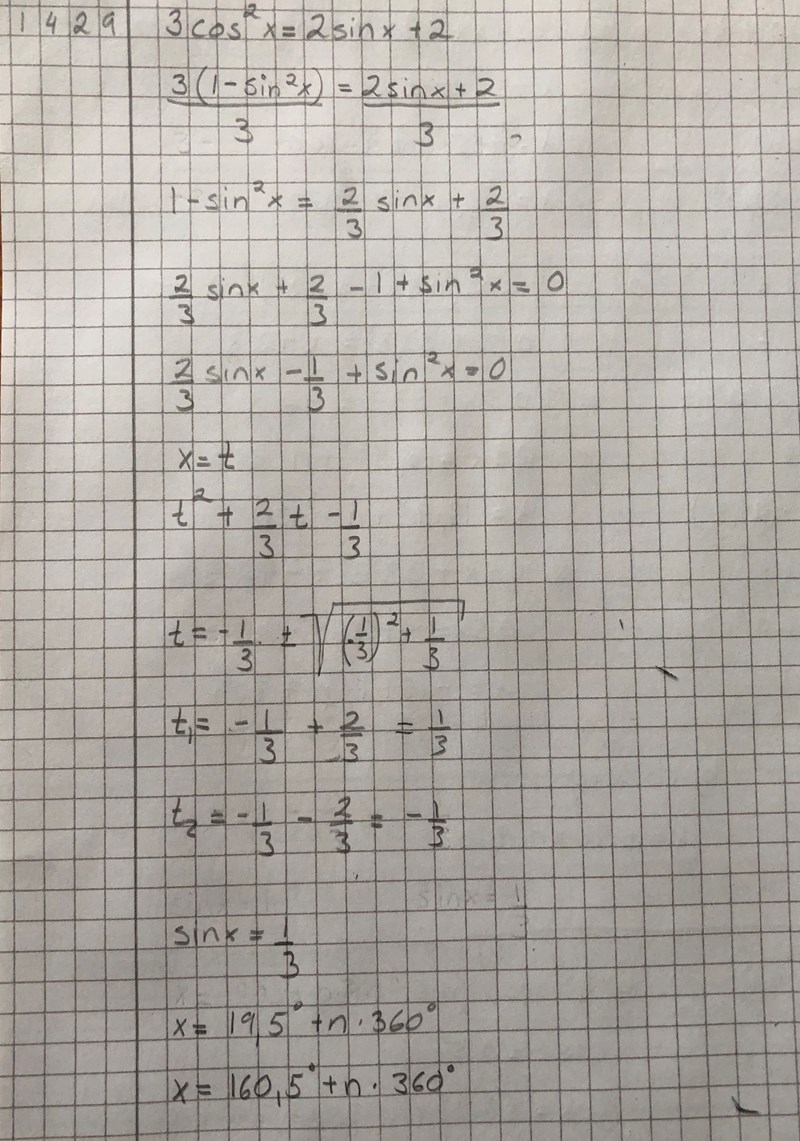 1429 3cos²x = 2sinx + 2
3(1-sin²x)/3 = 2sinx + 2/3
1-sin²x = 2/3 sinx + 2/3
2/3 sinx + 2/3 - 1 + sin²x = 0
2/3 sinx - 1/3 + sin²x = 0
x = t
t² + 2/3 t - 1/3
t = -1/3 ± √((-1/3)² + 1/3)
t₁ = -1/3 + 2/3 = 1/3
t₂ = -1/3 - 2/3 = -1/3
sinx = 1/3
x = 19,5° + n · 360°
x = 160,5° + n · 360°